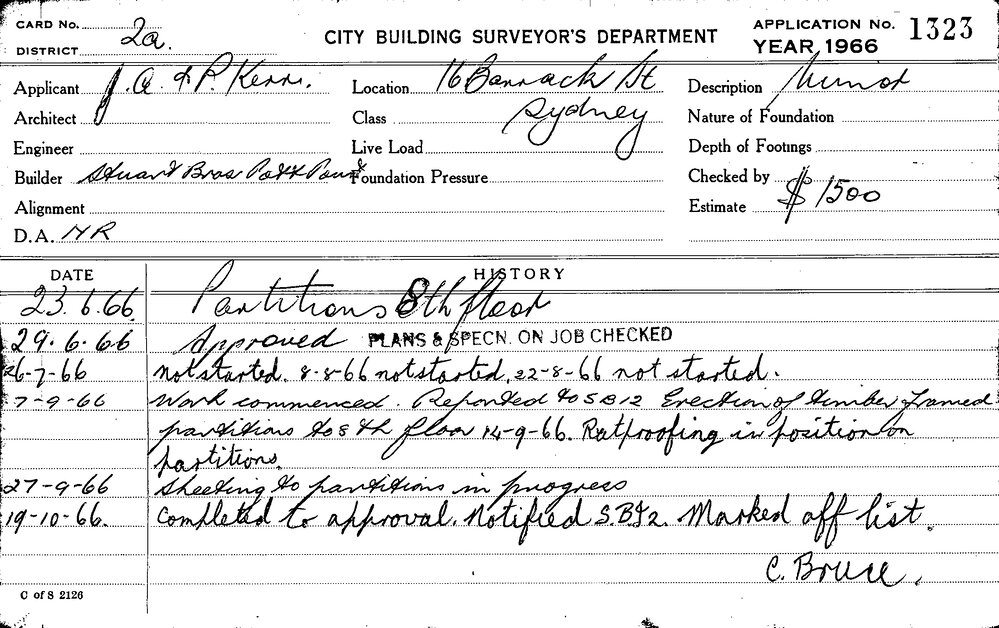 CARD No. 2a.
DISTRICT
CITY BUILDING SURVEYOR'S DEPARTMENT
APPLICATION No. 1323
YEAR 1966
Applicant J. A. & P. Kerr.
Location 16 Barrack St
Description Minor
Architect
Class Sydney
Nature of Foundation
Engineer
Live Load
Depth of Footings
Builder Stuart Bros
Foundation Pressure
Checked by
Alignment
Estimate $1500
D.A. NR
DATE
HISTORY
23.6.66. Partitions 8th floor
29.6.66 Approved PLANS & SPECN. ON JOB CHECKED
26-7-66 not started. 8-8-66 not started, 22-8-66 not started.
7-9-66 Work commenced. Reported to SB12 Erection of timber framed
partitions to 8th floor 14-9-66. Ratproofing in position on
partitions.
27-9-66 Sheeting to partitions in progress
19-10-66. Completed to approval. Notified S.B.12. Marked off list.
C. Bruce.
C of S 2126